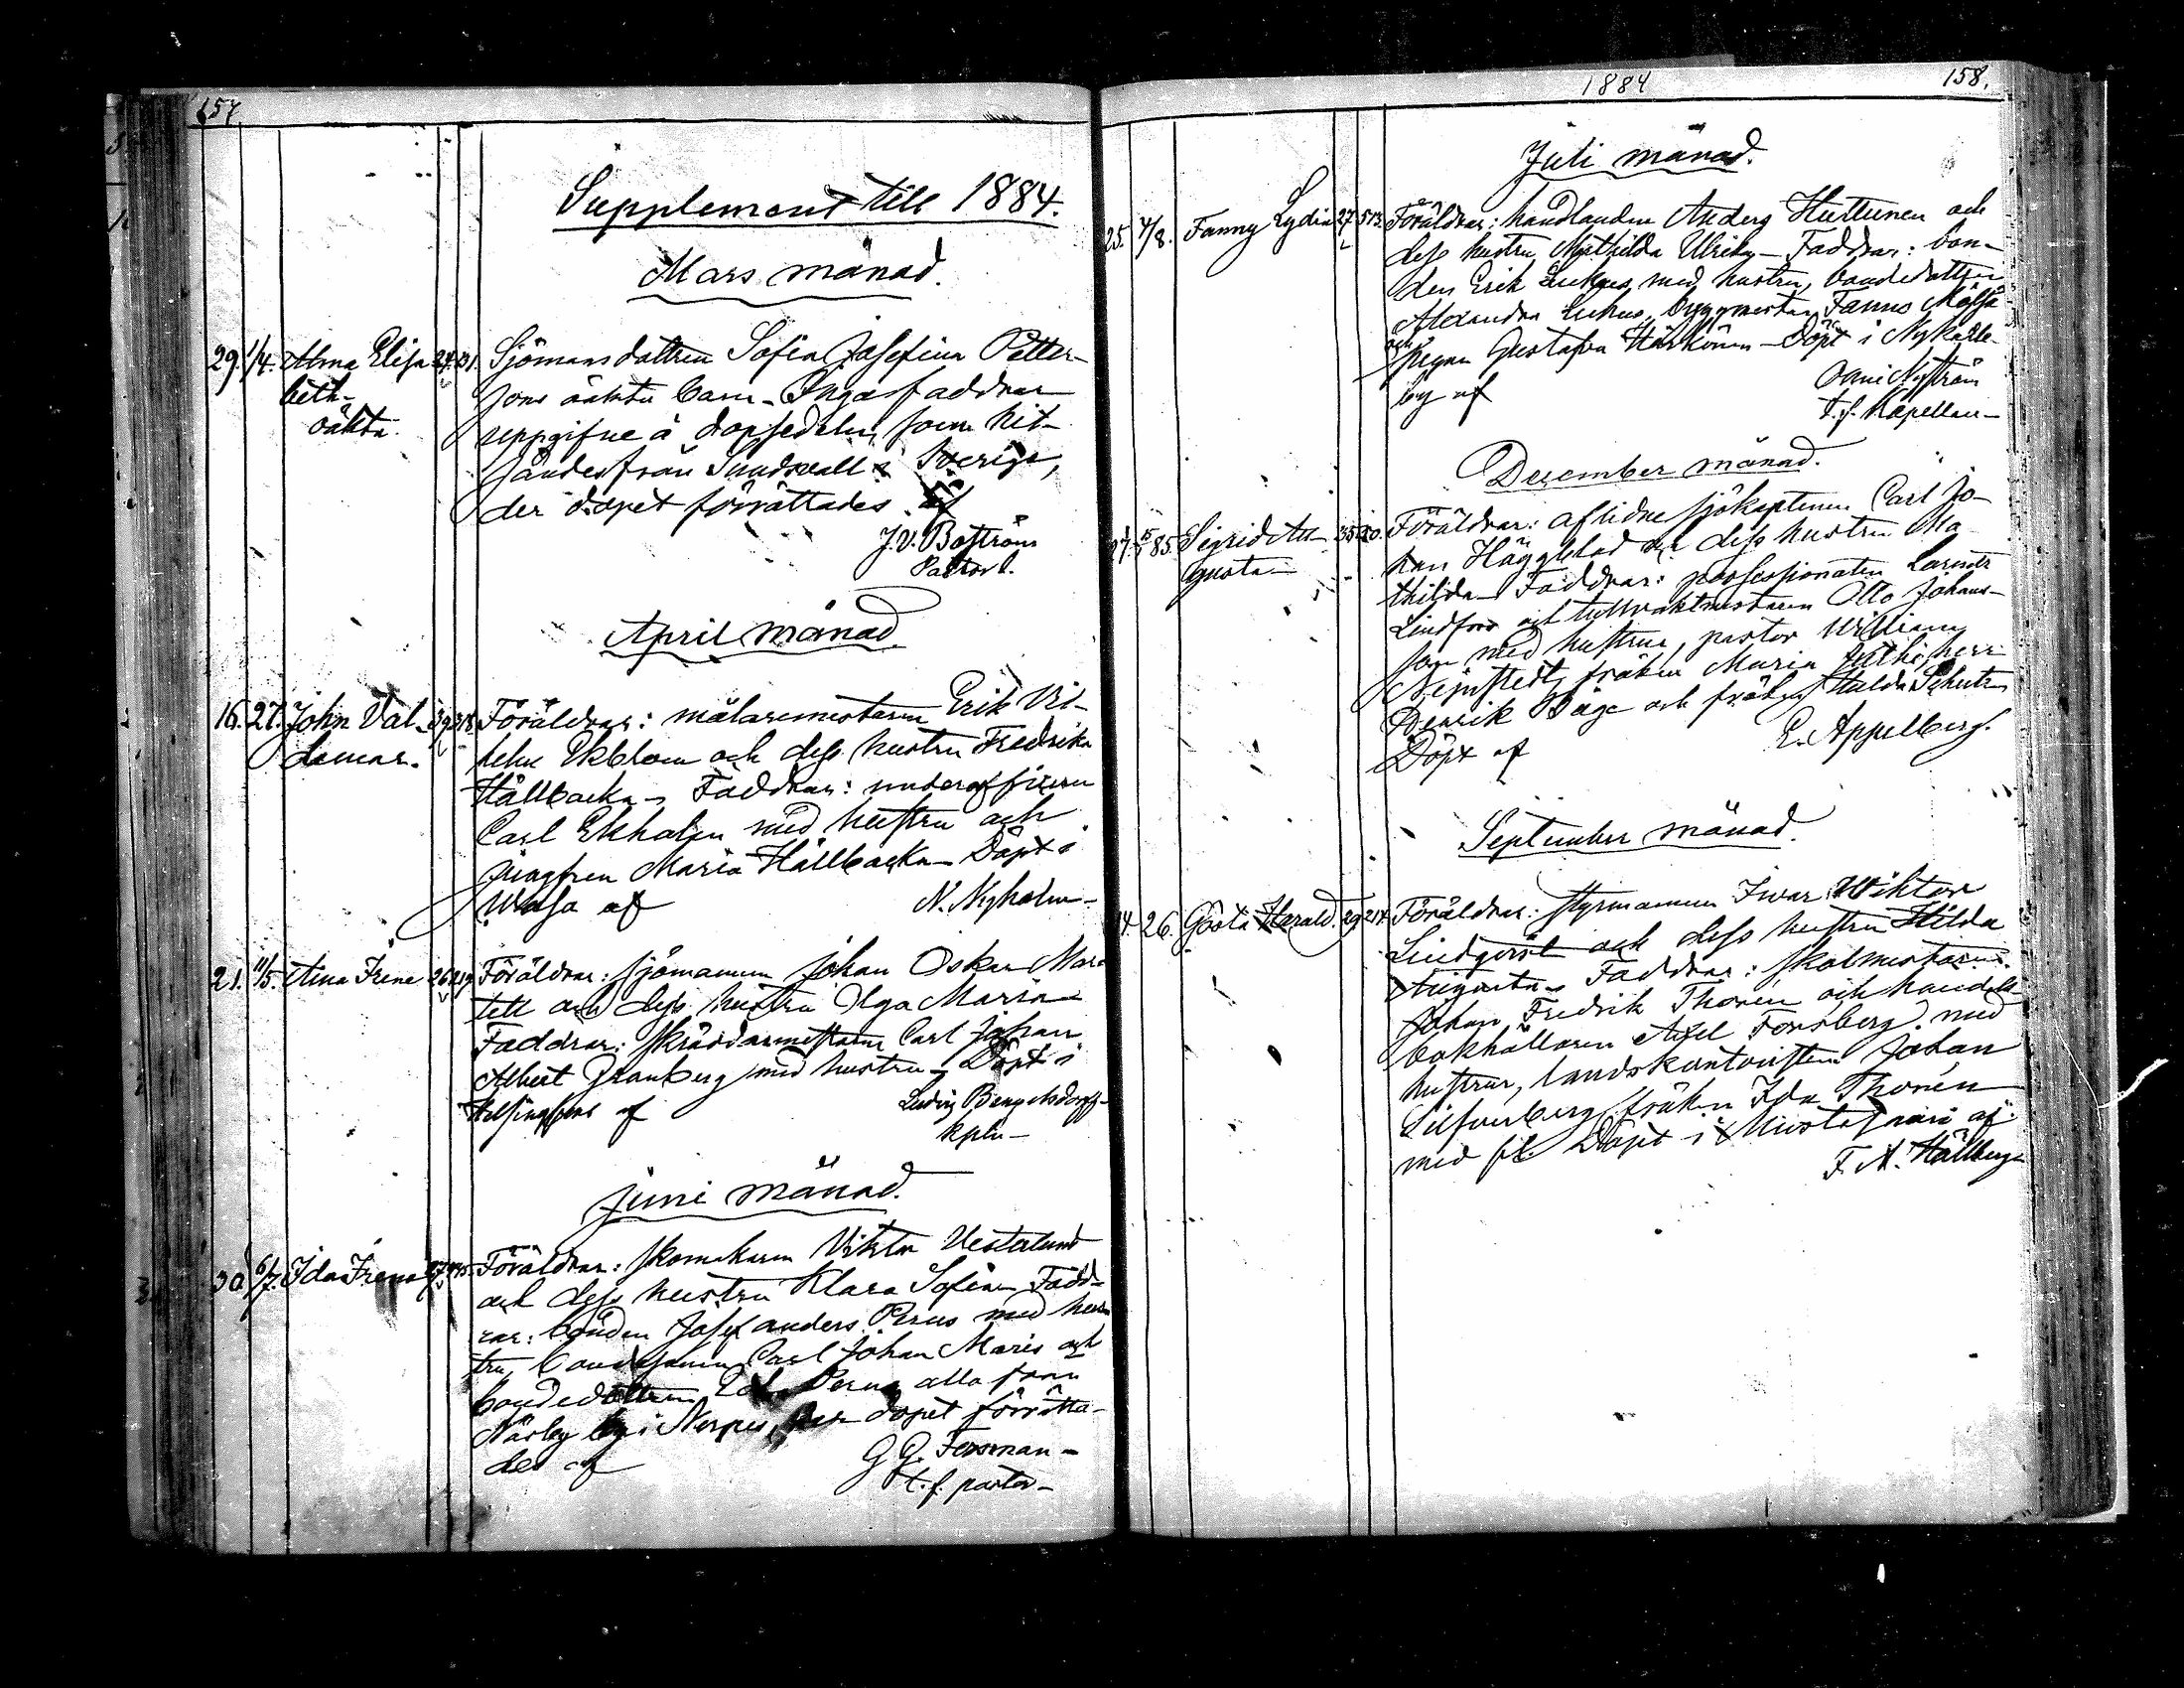 157.
Supplement till 1884.
Mars månad.
29. 1/4. Alma Elisa 24. 31. Sjömansdottren Sofia Josefina Petter-
beth- sons oäkta barn. Inga faddrar
oäkta. uppgifne å dopsedeln, som hit-
sändes från Sundsvall i Sverige,
der dopet förrättades af
J. V. Boström
Pastor l.
April månad.
16. 27. John Val- 39 Föräldrar: målaremästaren Erik Vil-
demar. helm Ekblom och dess hustru Fredrika
Hällbacka. Faddrar: underofficeren
Carl Ekholm med hustru och
jungfrun Maria Hällbacka. Döpt i
Wasa af N. Nyholm.
21. 11/5. Aina Irene 26 219 Föräldrar: sjömannen Johan Oskar Mar-
tell och dess hustru Olga Maria
Faddrar: skräddarmästaren Carl Johan
Albert Granberg med hustru. Döpt i
Helsingfors af Ludvig Bengelsdorff
kpln
Juni månad.
30. 6/7. Ida Irena 27 Föräldrar: skomakaren Viktor Vesterlund
och dess hustru Klara Sofia. Fadd-
rar: bonden Josef Anders Perus med hus-
tru, bondesonen Carl Johan Maris och
bondedottren Perus alla från
Närby by i Nerpes, der dopet förrätta-
des af G. G. Forsman
t. f. pastor
1884 158.
Juli månad.
25. 4/8. Fanny Lydia 27 513. Föräldrar: handlanden Anders Huttunen och
dess hustru Mathilda Ulrika. Faddrar: bon-
den Erik Lukus med hustru, bondedottren
Alexandra Lukus, byggmästar
och pigan Gustafva Härkönen. Döpt i Nykarle-
by af Nyström
t. f. Kapellan
December månad.
27. 85. Sigrid Au- 35 Föräldrar: aflidne sjökaptenen Carl Jo-
gusta han Häggblad och dess hustru Ma-
thilda. Faddrar: possessionaten
Lindfors och tullvaktmästaren Otto Johans-
son med hustrur, pastor William
fröken Maria herr
Henrik Båge och fröken Hulda
Döpt af E. Appelberg.
September månad.
14. 26. Gösta Harald. 29 217 Föräldrar: styrmannen Ivar Wiktor
Lindqvist och dess hustru Hilda
Augusta. Faddrar: skolmästaren
Johan Fredrik Thorén och handels-
bokhållaren Axel Forsberg med
hustrur, landskontoristen Johan
Silfverberg, fröken Ida Thorén
med fl. Döpt i Mustasaari af
F. A. Hällberg